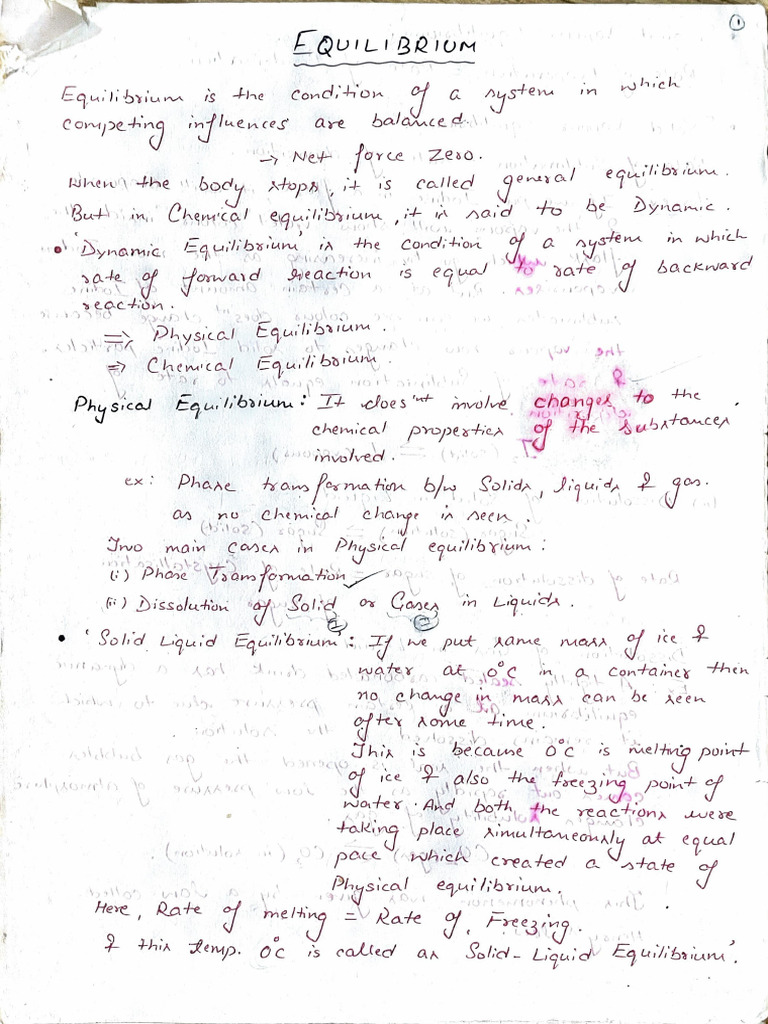 1
EQUILIBRIUM
Equilibrium is the condition of a system in which
competing influences are balanced.
→ Net force Zero.
When the body stops, it is called general equilibrium.
But in Chemical equilibrium, it is said to be Dynamic.
• 'Dynamic Equilibrium' is the condition of a system in which
rate of forward reaction is equal to rate of backward
reaction.
⇒ Physical Equilibrium.
⇒ Chemical Equilibrium.
Physical Equilibrium: It does'nt involve changes to the
chemical properties of the substances
involved.
ex: Phase transformation b/w Solids, liquids & gas.
as no chemical change is seen.
Two main cases in Physical equilibrium:
(i) Phase Transformation ✓
(ii) Dissolution of Solid or Gases in Liquids.
1 2
• 'Solid Liquid Equilibrium': If we put same mass of ice &
water at 0°C in a container then
no change in mass can be seen
after some time.
This is because 0°C is melting point
of ice & also the freezing point of
water. And both the reactions were
taking place simultaneously at equal
pace which created a state of
Physical equilibrium.
Here, Rate of melting = Rate of Freezing.
& this temp. 0°C is called as Solid-Liquid Equilibrium'.